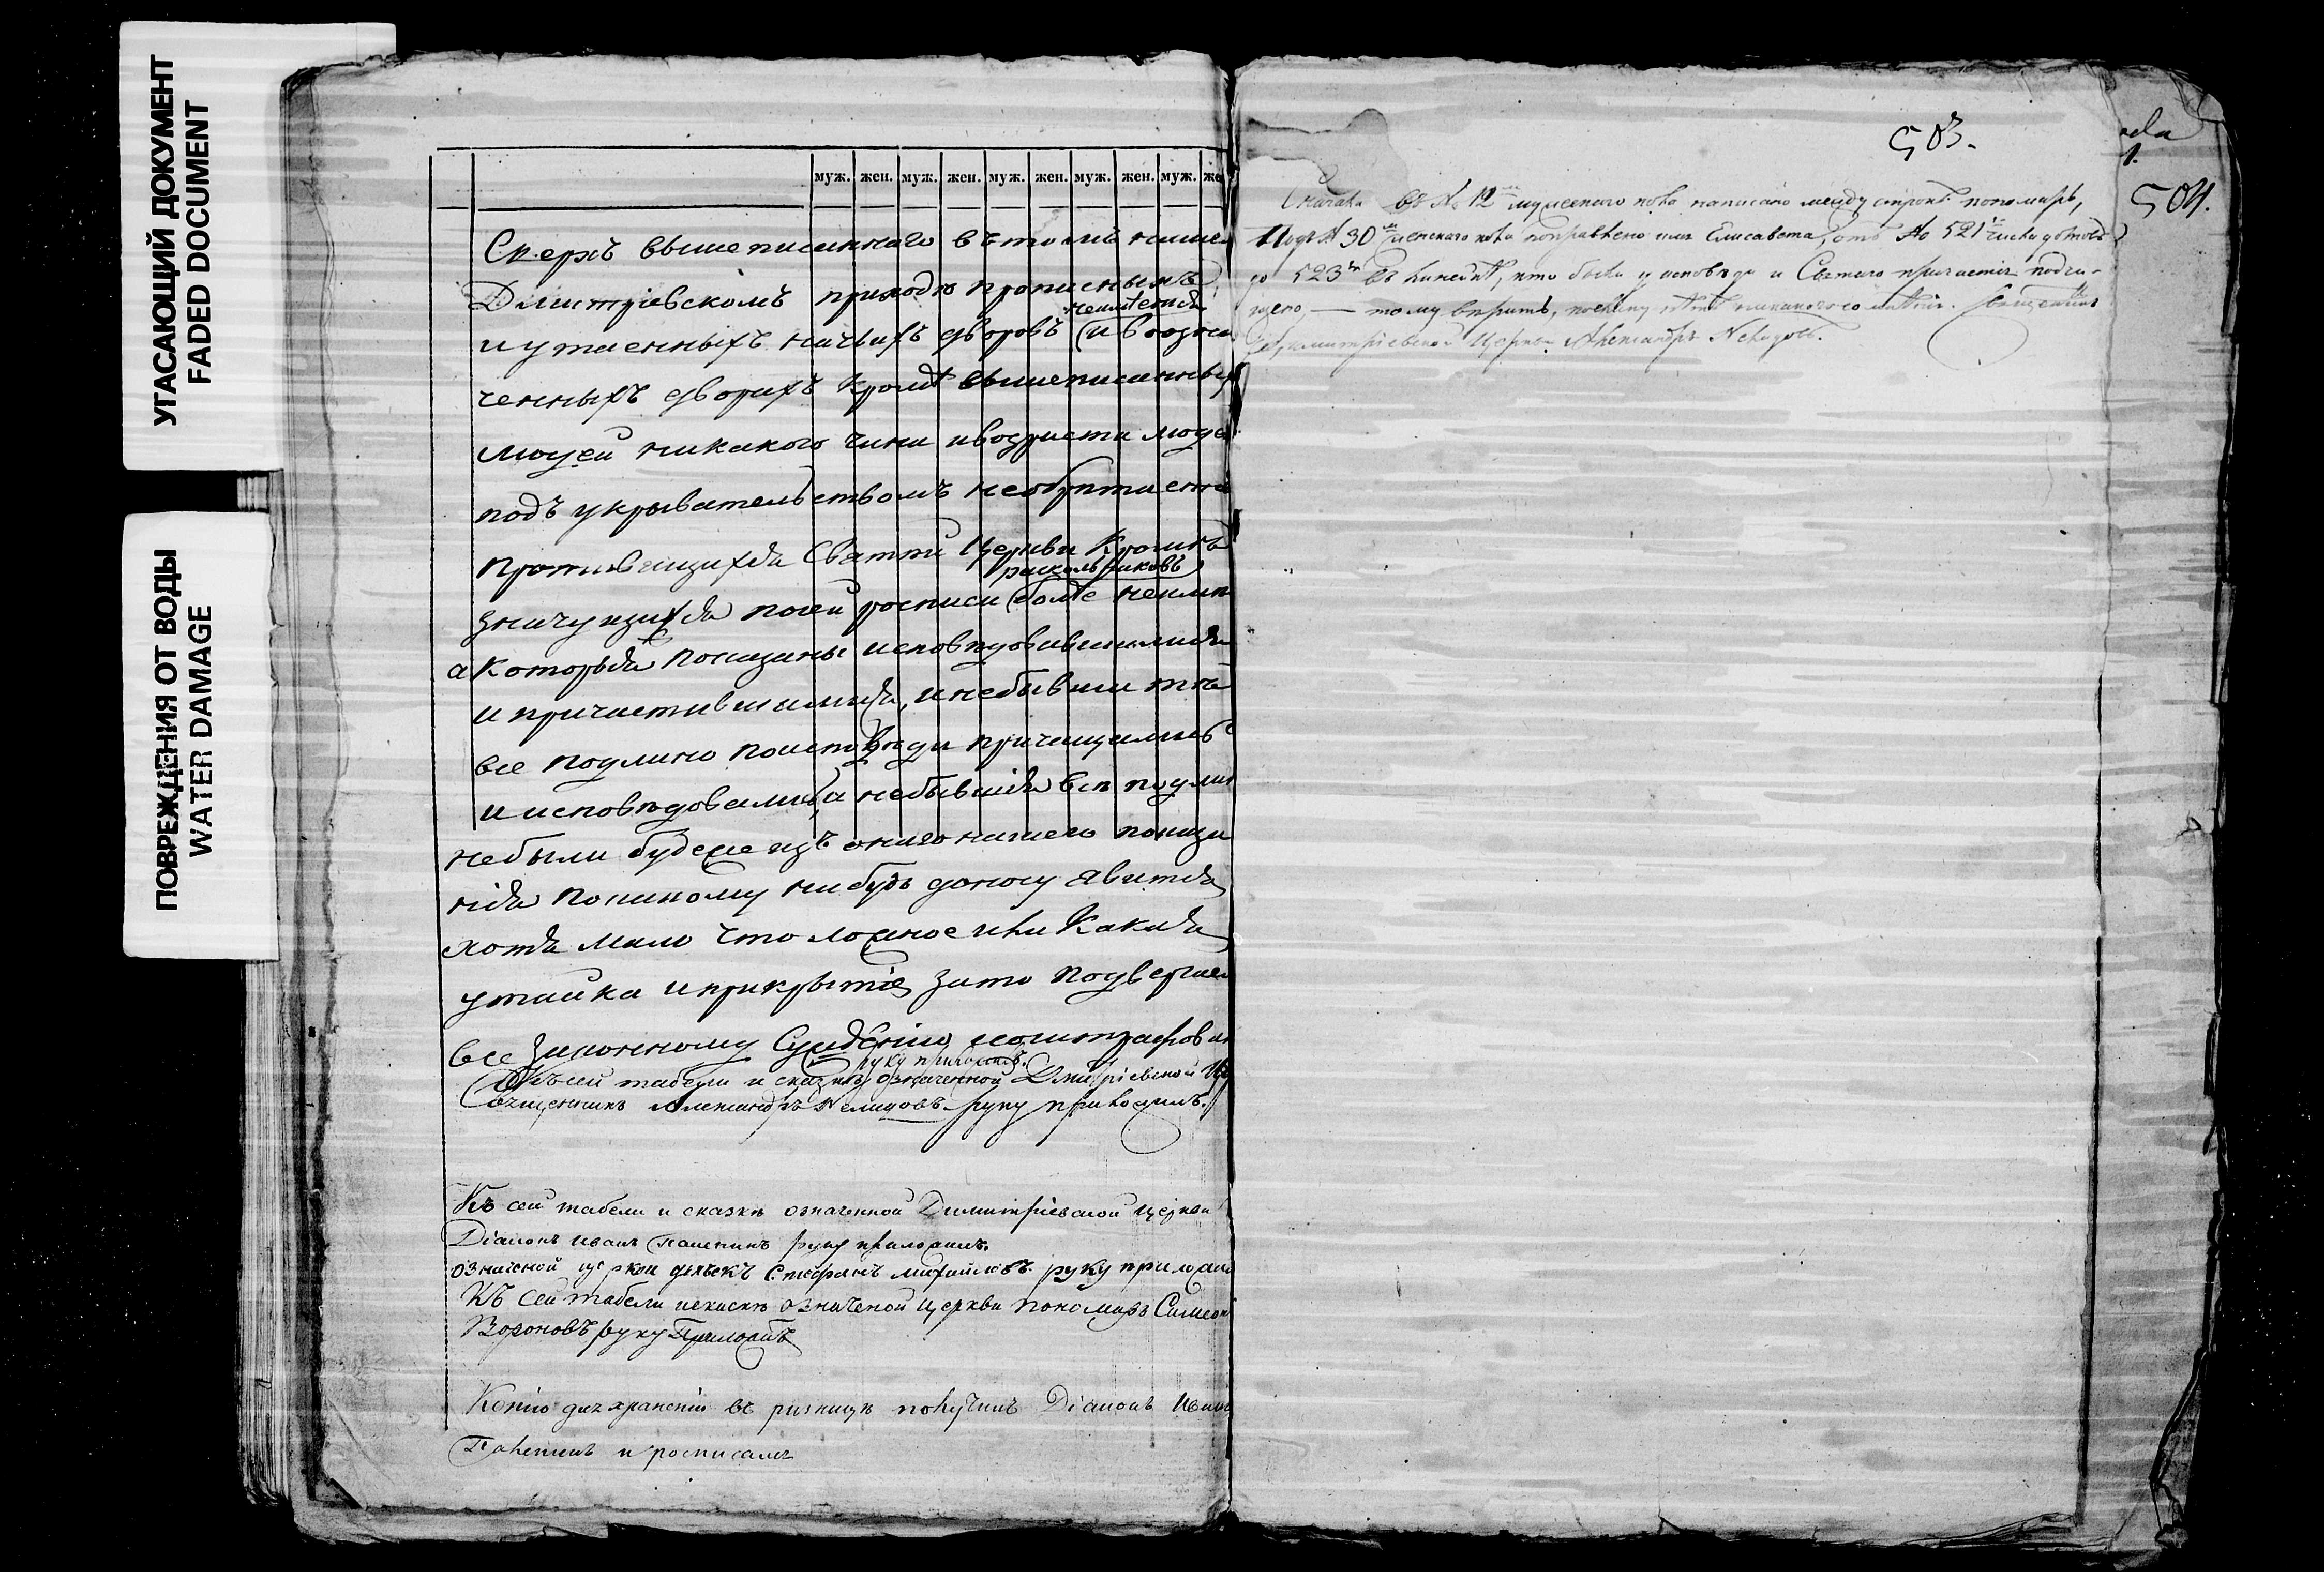 УГАСАЮЩИЙ ДОКУМЕНТ
FADED DOCUMENT
ПОВРЕЖДЕНИЯ ОТ ВОДЫ
WATER DAMAGE
муж. жен. муж. жен. муж. жен. муж. жен. муж. же
Сверхъ вышеписаннаго въ томъ нашем
Дмитріевскомъ приходѣ прописныхъ
неимѣется
и утаенныхъ какихъ дворовъ и возна
ченныхъ дворахъ кромѣ вышеписанных
людей никакого чина и возраста люде
подъ укрывательствомъ необрѣтается
противящихся Святѣй Церкви кромѣ
раскольниковъ
значущихся посей росписи болѣе неимѣ
а которыя показаны исповѣдовавшимися
и причастившимися, и небывши тѣ
все подлино поисповѣди причащались
и исповѣдовались, а небывшія всѣ подлин
небыли будеже изъ онаго нашего показа
нія покакому нибудь доносу явится
хотя мало что ложное или какая
утайка и прикрытіе зато подвергаем
все законному Сужденію и оштрафован
руку приложилъ.
Къ сей табели и сказкѣ означенной Дмитріевской Це
Священникъ Александръ Нелидовъ руку приложилъ.
Къ сей табели и сказкѣ означенной Димитріевской церкви
Діаконъ Иванъ руку приложилъ.
означеной церкви дьячекъ Стефанъ Михайловъ руку приложи
Къ сей табели искаскѣ означеной церкви пономарь Симеон
Вороновъ руку Приложилъ
Копію для храненія въ ризницѣ получилъ Діаконъ Иван
и росписалъ
503.
1.
504.
Сначала въ № 12 мужескаго пола написано между строкъ пономарь,
Подъ № 30 женскаго пола поправлено имя Елисавета, отъ № 521 числа
до 523 въ линейкѣ, кто были у исповѣди и Святаго причастія подчи-
щено, — тому вѣрить, никакого сомнѣнія. Священникъ
Димитріевской Церкви Александръ Нелидовъ.